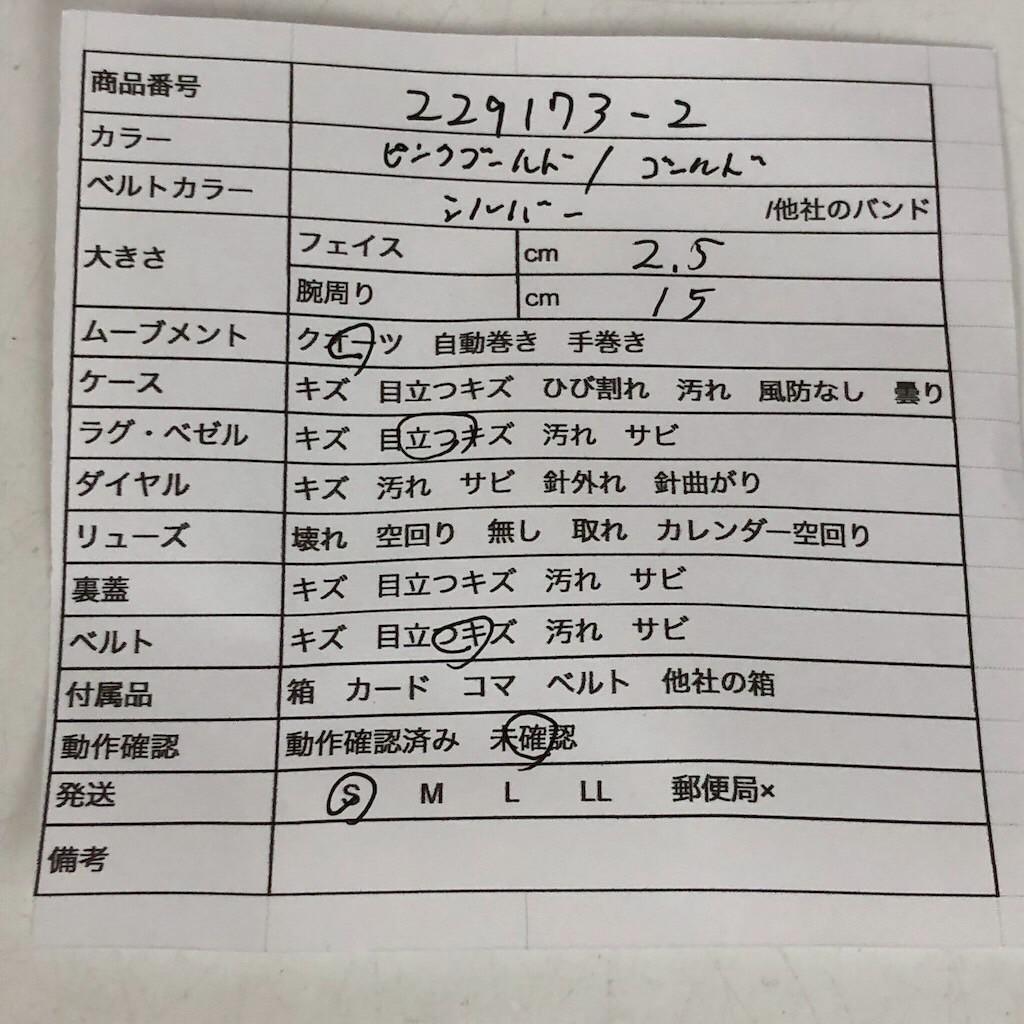 商品番号 229173-2
カラー ピンクゴールド/ゴールド
ベルトカラー シルバー /他社のバンド
大きさ フェイス cm 2.5
腕周り cm 15
ムーブメント クオーツ 自動巻き 手巻き
ケース キズ 目立つキズ ひび割れ 汚れ 風防なし 曇り
ラグ・ベゼル キズ 目立つキズ 汚れ サビ
ダイヤル キズ 汚れ サビ 針外れ 針曲がり
リューズ 壊れ 空回り 無し 取れ カレンダー空回り
裏蓋 キズ 目立つキズ 汚れ サビ
ベルト キズ 目立つキズ 汚れ サビ
付属品 箱 カード コマ ベルト 他社の箱
動作確認 動作確認済み 未確認
発送 S M L LL 郵便局×
備考